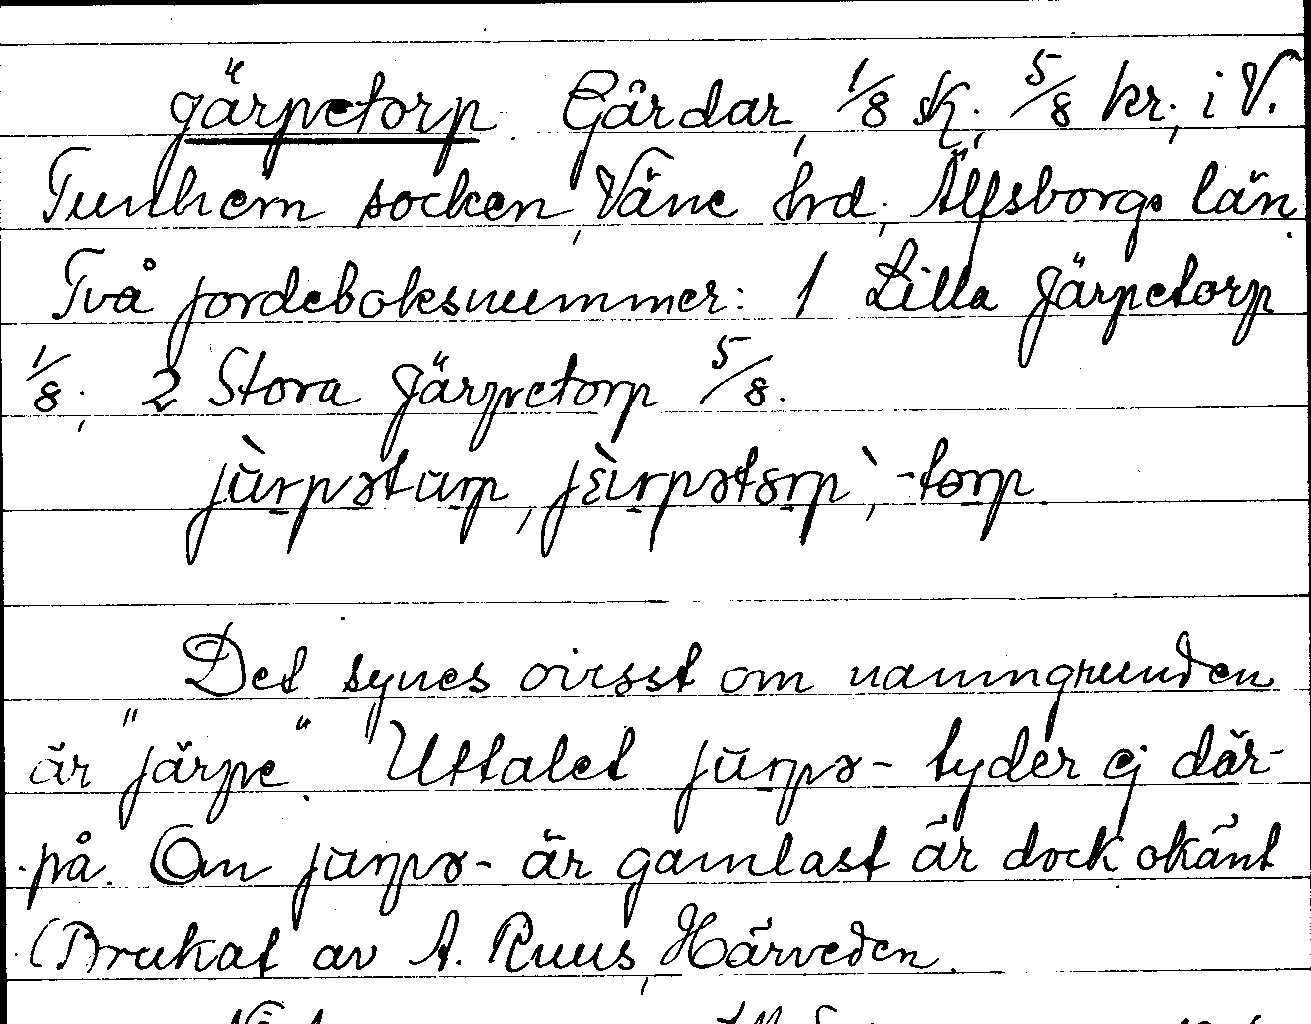 Järpetorp. Gårdar, 1/8 sk., 5/8 kr., i V.
Tunhem socken, Väne hrd, Älfsborgs län.
Två jordeboksnummer: 1 Lilla Järpetorp
1/8, 2 Stora Järpetorp 5/8.
-torp
Det synes ovisst om namngrunden
är "järpe". Uttalet jurpə- tyder ej där-
på. Om jurpə- är gamlast är dock okänt
(Brukat av A. Ruus, Härveden.